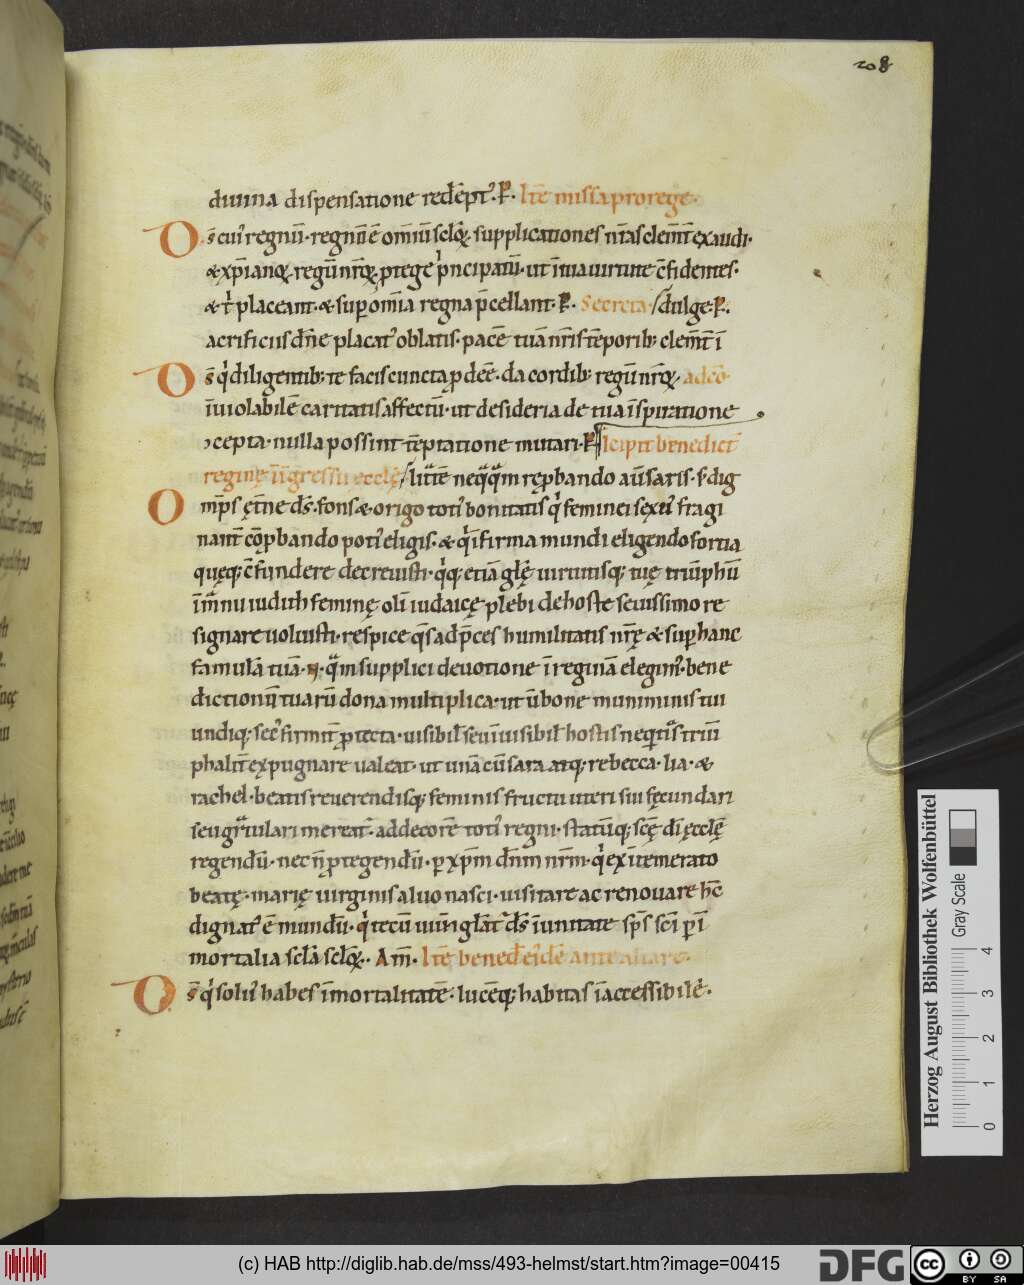 208
diuina dispensatione redēpt᾽. P. Itē missa pro rege.
O s̄ cui᾽ regnū. regnū ē omīu sclǫꝝ. supplicationes nr̄as clem̄t exaudi.
& xp̄ianoꝝ. regū nr̄oꝝ. ꝓtege p̍ncipatū. ut ī tua uirtute c̄fidentes.
& t̍ placeant. & sup om̄ia regna p̄cellant. P. Secreta /dulge. P.
acrificiis dn̄e placat᾽ oblatis. pacē tuā nr̄is tēporib; clem̄t ī
O s̄ q̍ diligentib; te facis cuncta ꝓdēē. da cordib; regū nr̄oꝝ. ad cō
īuiolabilē caritatis affectū. ut desideria de tua īspiratione
ↄcepta. nulla possint tēptatione mutari. P. Īcipit benedict̄
reginę ī īgressu ecclę /litē neq̄q̄m rep̱bando auersaris. s; dig
O mp̄s ęt̄ne ds̄. fons & origo toti᾽ bonitatis q̍ feminei sex᾽ fragi
nant̄ cōp̱bando poti᾽ eligis. & q̍ ifirma mundi eligendo fortia
quęq; c̄fundere decreuisti. q̍q; etiā glę̄ uirtutisq; tuę triūphū
ī m̄nu iudith feminę olī iudaicę plebi de hoste seuissimo re
signare uoluisti. respice qs̄ ad p̄ces humilitatis nr̄ę & sup hanc
famulā tuā. N. q̄m supplici deuotione ī reginā elegim᾽. bene
dictionū tuarū dona multiplica. ut ūbone muniminis tui
undiq; sec᾽ firmit̄ ꝓtecta. uisibil̄ seu īuisibil̄ hostis neq̍tis t̍ū
phalit̄ expugnare ualeat. ut unā cū sara atq; rebecca. lia. &
rachel. beatis reuerendisq; feminis fructu uteri sui fęcundari
seu gr̄tulari mereat᾽. ad decorē toti᾽ regni. statūq; scę̄ dī ęcclę
regendū. necn̄ ꝓtegendū. p xp̄m dn̄m nr̄m. q̍ ex ītemerato
beatę. marię uirginis aluo nasci. uisitare ac renouare hc̄
dignat᾽ ē mundū. q̍ tecū uiu̅ glāt᾽ ds̄ ī unitate sp̄s sc̄i p ī
mortalia sclā scloꝝ. Am̄. Itē bened̄ ei᾽dē ante altare.
O s̄ q̍ solu᾽ habes īmortalitatē. lucēq; habitas īaccessibilē.
Herzog August Bibliothek Wolfenbüttel
Gray Scale
0 1 2 3 4
(c) HAB http://diglib.hab.de/mss/493-helmst/start.htm?image=00415
DFG
cc BY SA